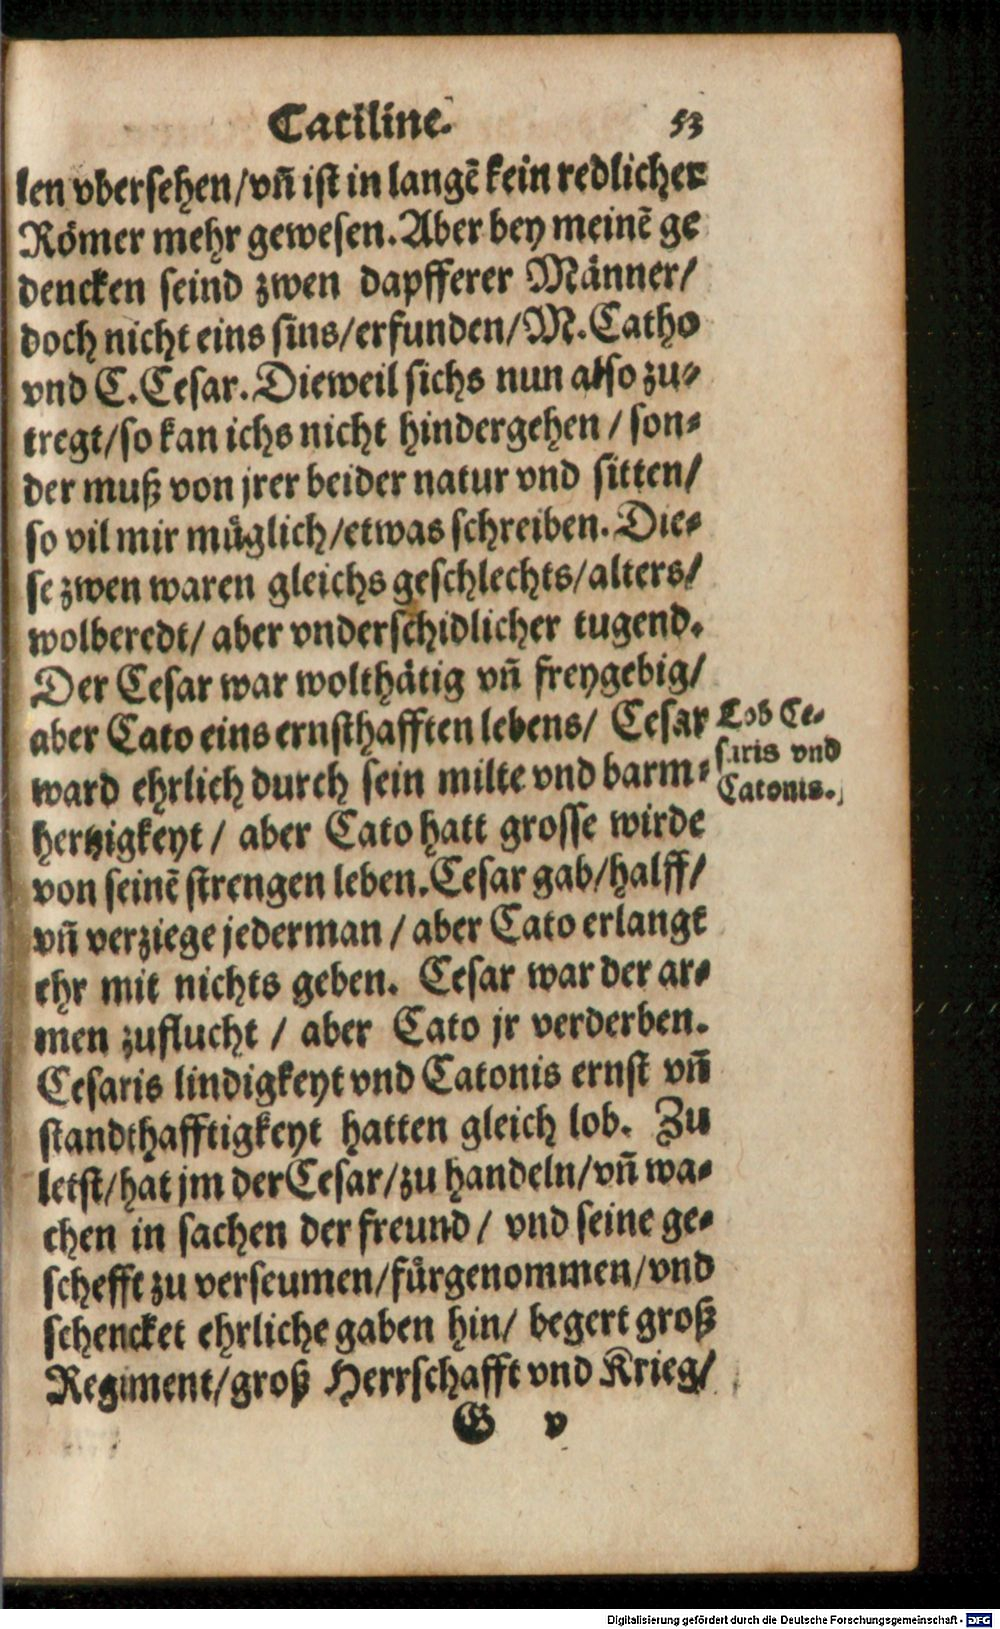 Catiline. 53
len vbersehen/vñ ist in langẽ kein redlicher
Römer mehr gewesen. Aber bey meinẽ ge
dencken seind zwen dapfferer Männer/
doch nicht eins sins/erfunden/M. Catho
vnd C. Cesar. Dieweil sichs nun also zu-
tregt/so kan ichs nicht hindergehen/son-
der muß von jrer beider natur vnd sitten/
so vil mir müglich/etwas schreiben. Die-
se zwen waren gleichs geschlechts/alters/
wolberedt/aber vnderschidlicher tugend.
Der Cesar war wolthätig vñ freygebig/
aber Cato eins ernsthafften lebens/ Cesar
ward ehrlich durch sein milte vnd barm-
hertzigkeyt/ aber Cato hatt grosse wirde
von seinẽ strengen leben. Cesar gab/halff/
vñ verziege jederman/aber Cato erlangt
ehr mit nichts geben. Cesar war der ar-
men zuflucht/ aber Cato jr verderben.
Cesaris lindigkeyt vnd Catonis ernst vñ
standthafftigkeyt hatten gleich lob. Zu
letst/hat jm der Cesar/zu handeln/vñ wa-
chen in sachen der freund/ vnd seine ge-
schefft zu verseumen/fürgenommen/vnd
schencket ehrliche gaben hin/ begert groß
Regiment/groß Herrschafft vnd Krieg/
G v
Lob Ce-
saris vnd
Catonis.
Digitalisierung gefördert durch die Deutsche Forschungsgemeinschaft - DFG